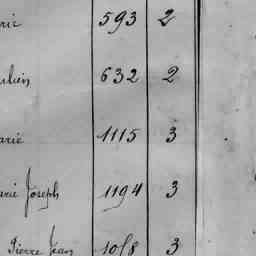 rie 593 2
ulien 632 2
arie 1115 3
arie Joseph 1194 3
Pierre Jean 1058 3